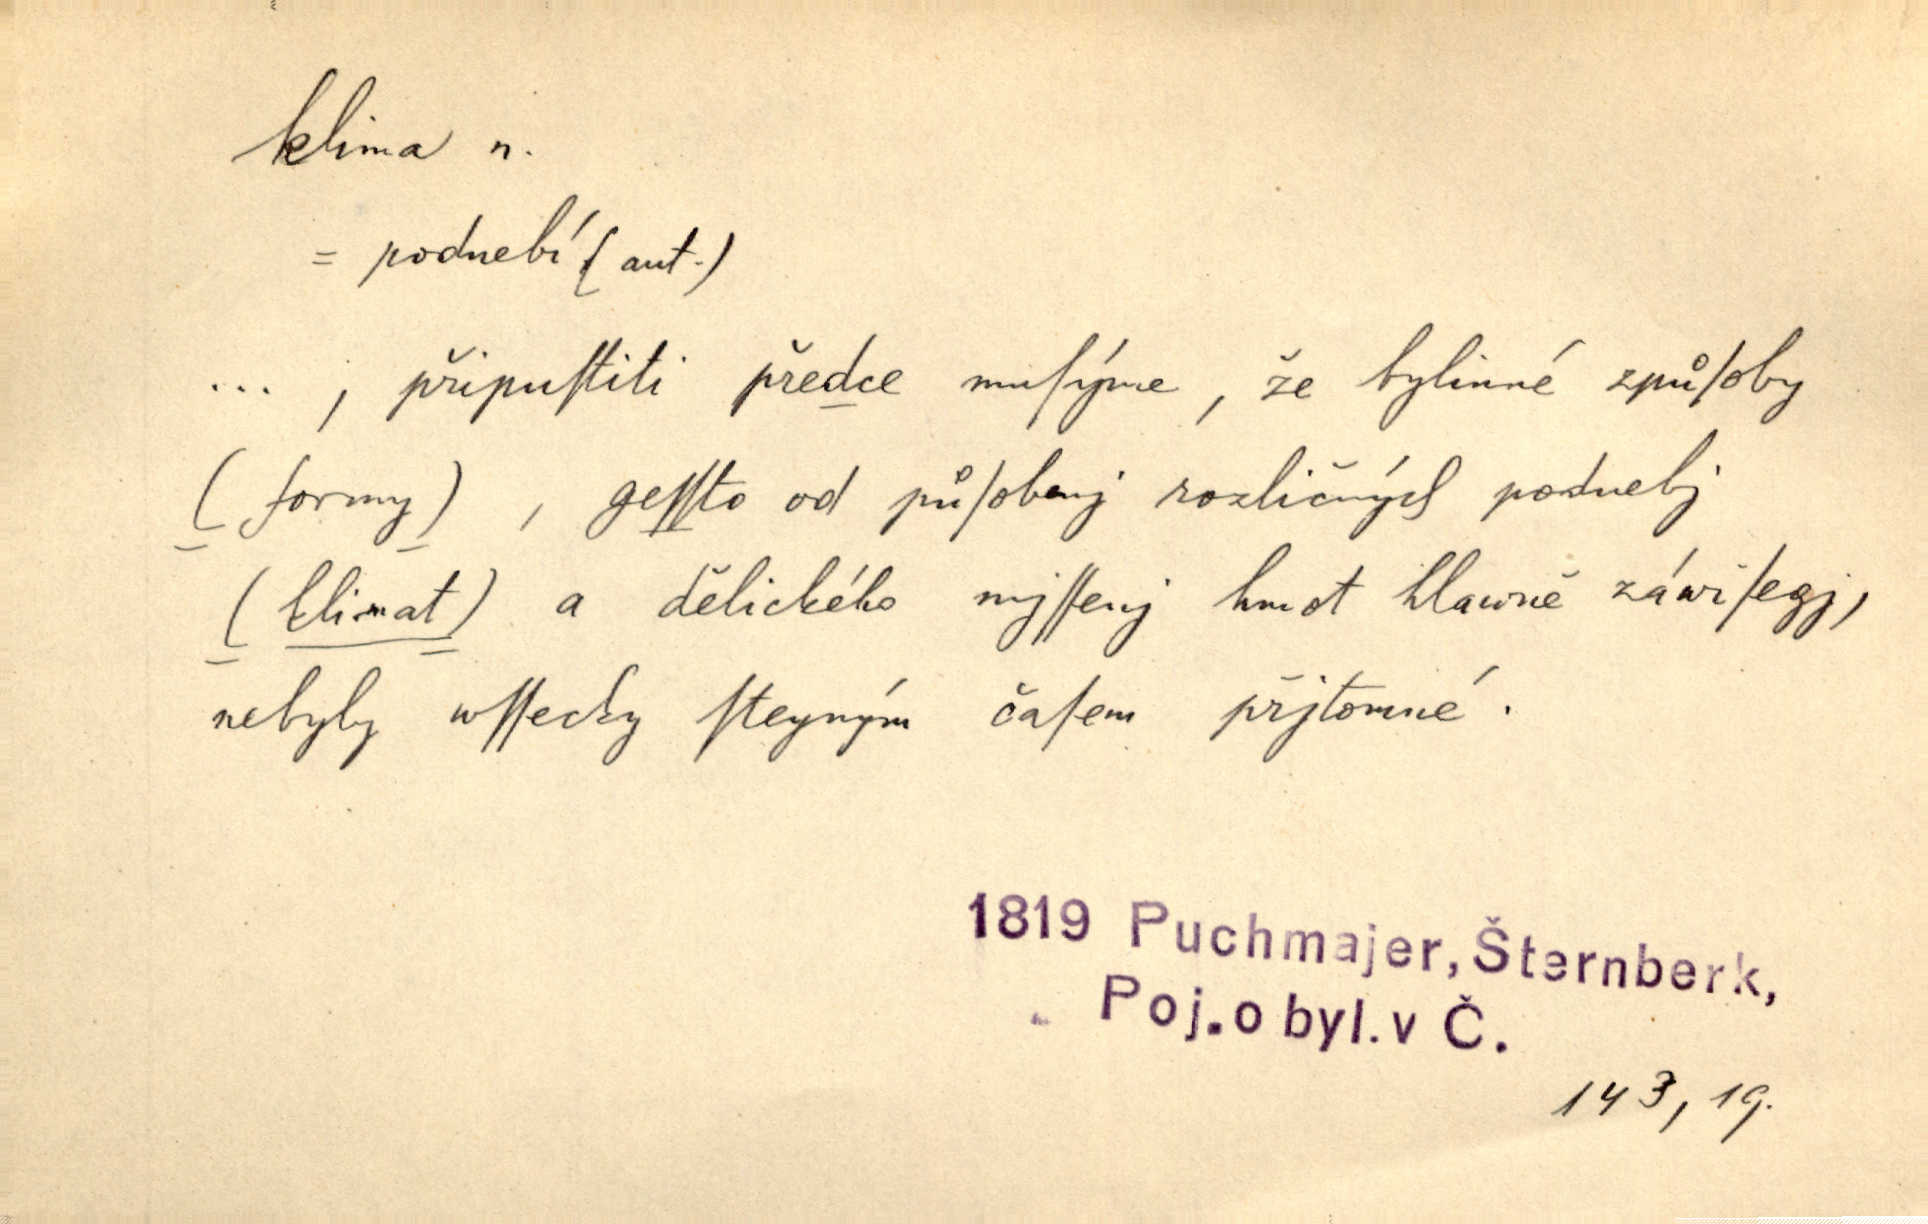 klima n.
= podnebí (aut.)
... , připuſtiti předce muſýme, že bylinné způſoby
(formy), geſſto od půſobenj rozličných podnebj
(klimat) a dělického mjſſenj hmot hlawně záwiſegj,
nebyly wſſecky ſteyným čaſem přjtomné.
1819 Puchmajer, Šternberk,
Poj. o byl. v Č.
143, 19.